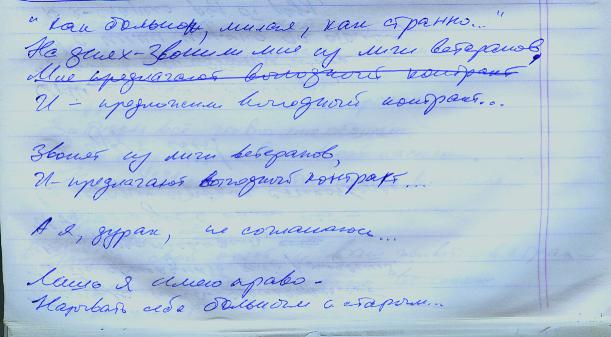 "Как больно, милая, как странно..."
На днях - звонили мне из лиги ветеранов,
Мне предлагают выгодный контракт
И - предложили выгодный контракт...
Звонят из лиги ветеранов,
И - предлагают выгодный контракт...
А я, дурак, не соглашаюсь...
Лишь я имею право -
Называть себя больным и старым...